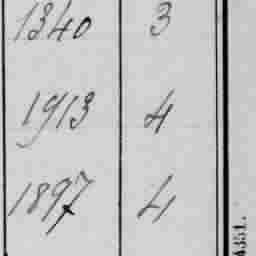 1340 3
1913 4
1897 4
4351.